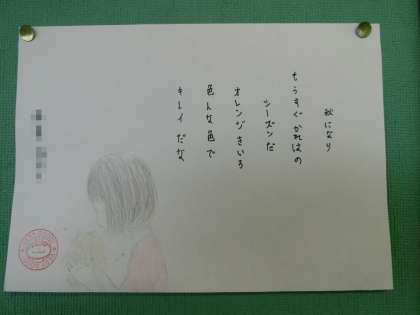 秋になり
もうすぐかれはの
シーズンだ
オレンジきいろ
色んな色で
キレイだな